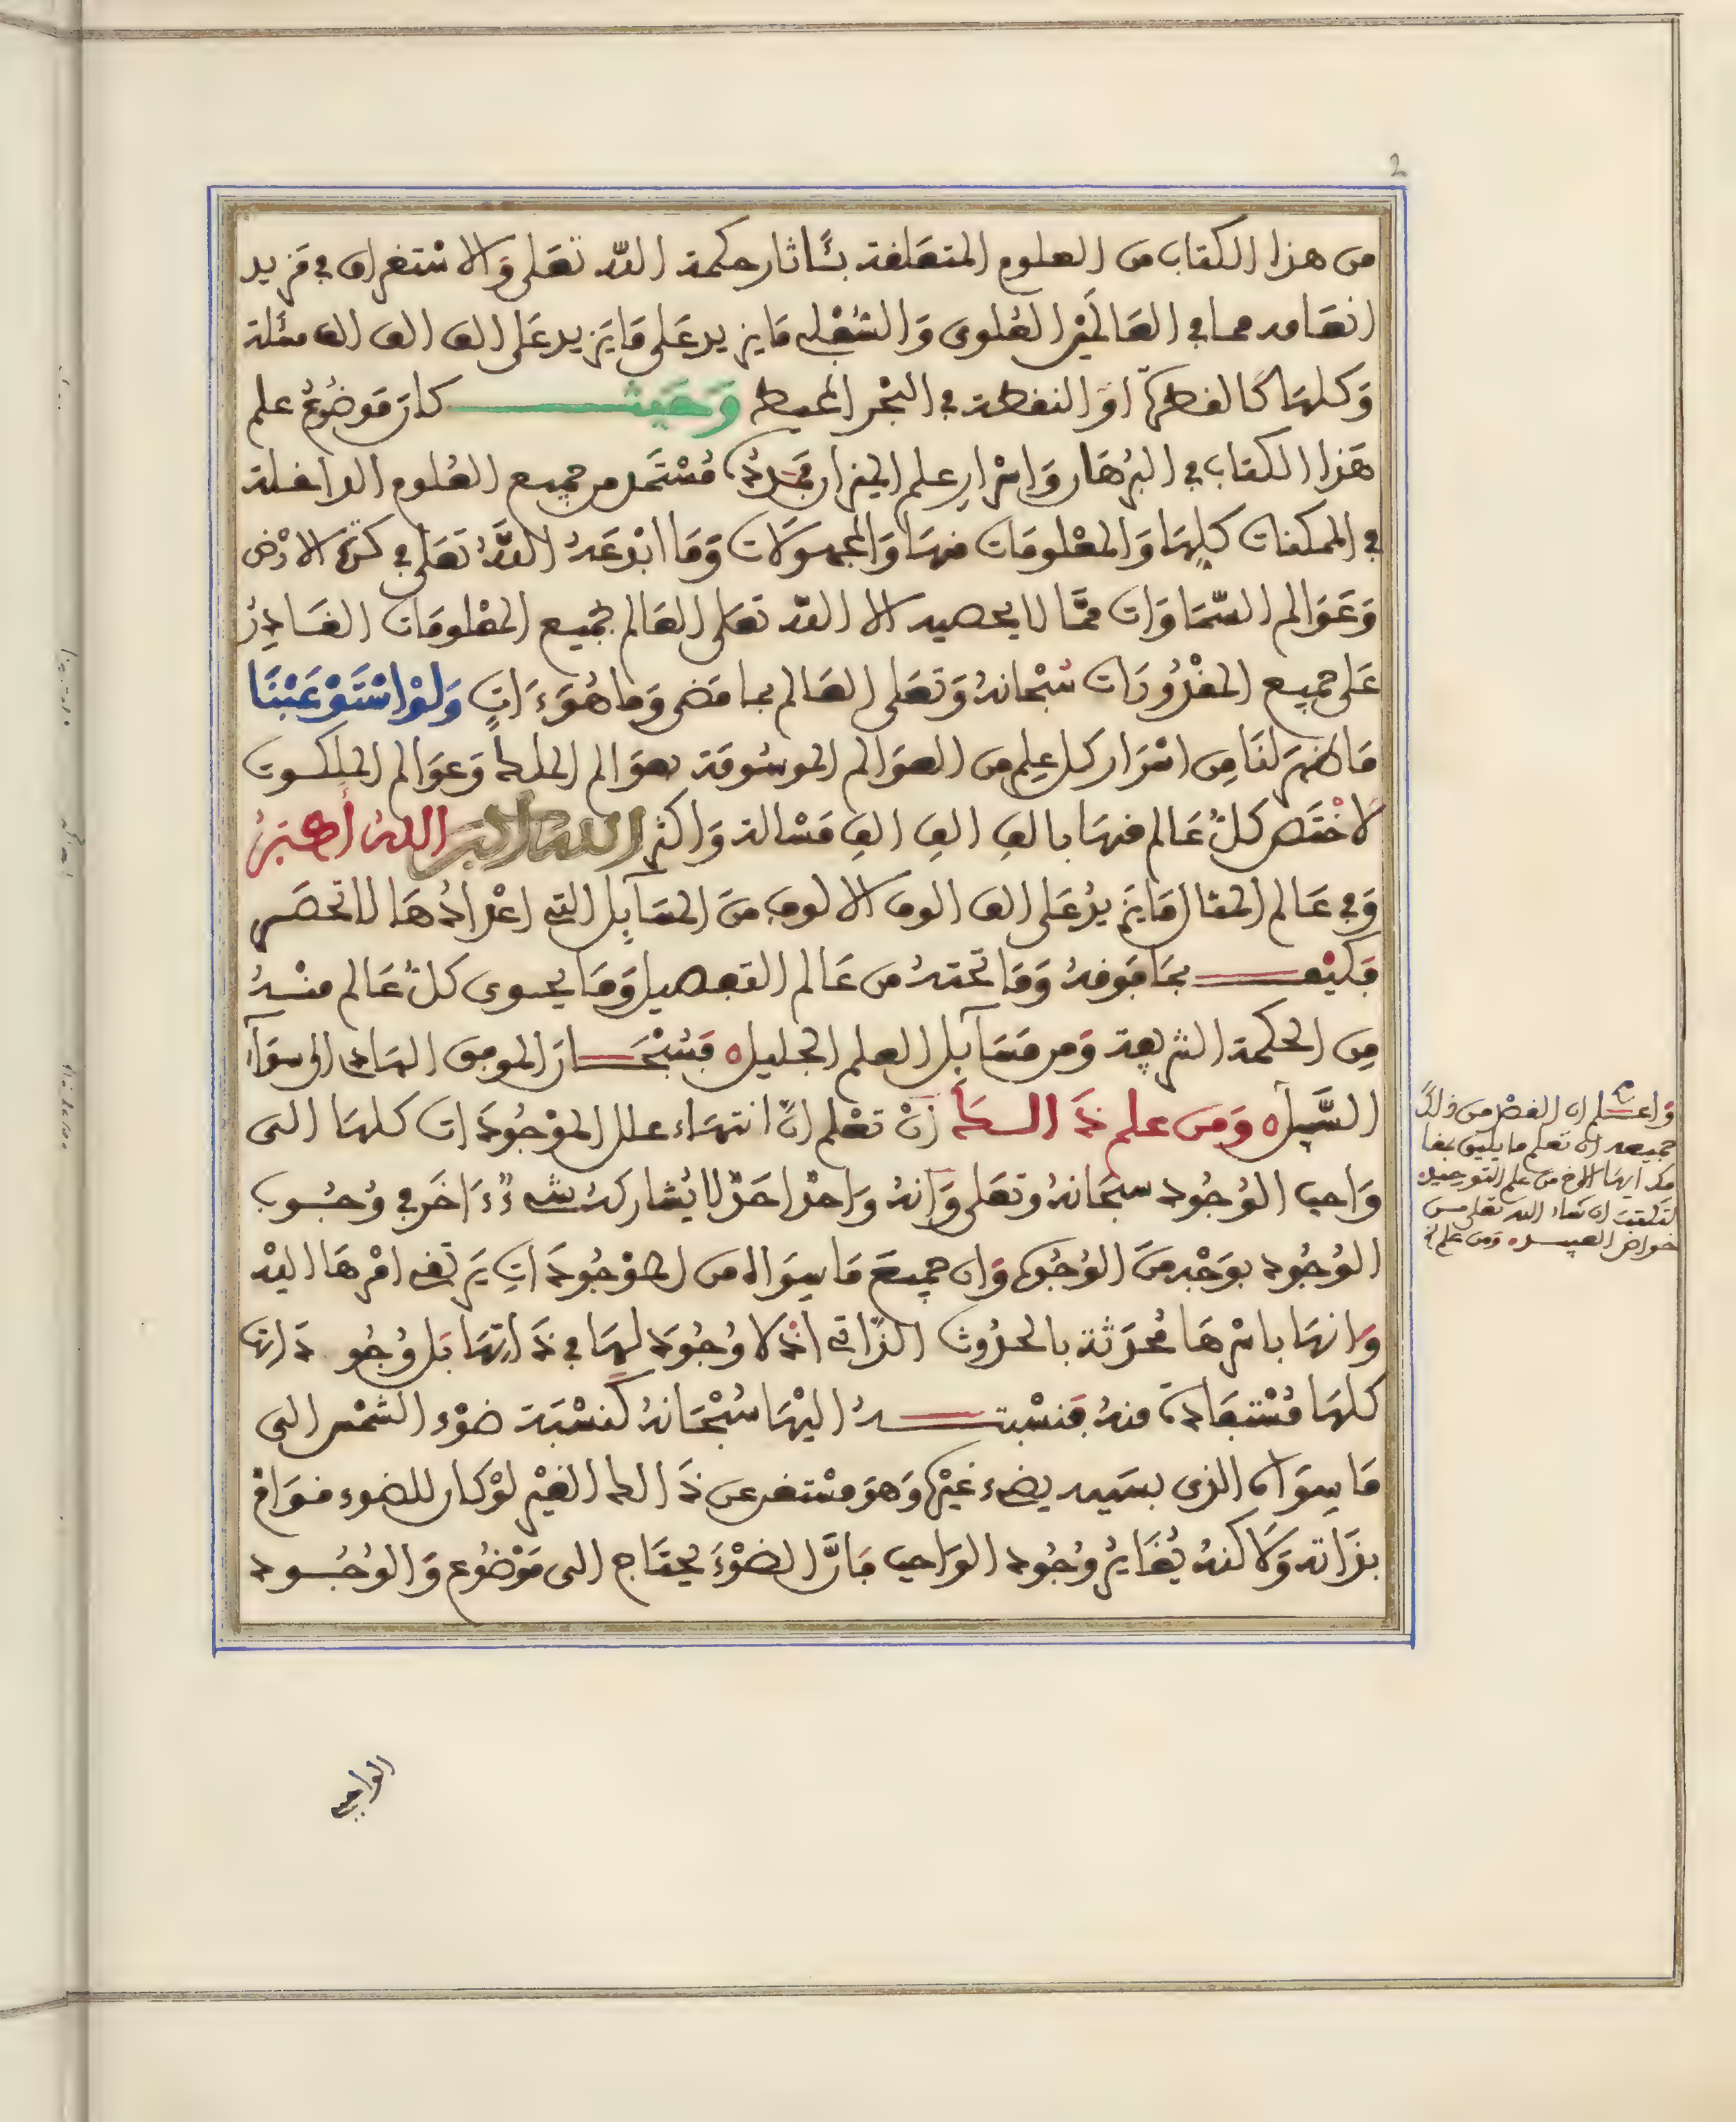 2
من هذا الكتاب من العلوم المتعلقة بـَٔاثار حكمة اللّه تعَلى وَالاستغراق في مَزيد
انعَامه مما في العَالَمَيْن العُلوى وَالسُّفْلى مَا يزيد عَلى مَا يَزيد عَلى الف الف الف مسْئلة
وَكلهَا كَالقطرَة اوَ النقطة في البَحْر المحيط وَحَيث كانَ مَوضُوعُ علم
هَذا الكتاب في البُرهَان وَاسْرارِ علم الميزان مجَردُهُ مُسْتَمَد من جميع العُلوم الداخلة
في الممكنات كلِهَا وَالمعْلومَات منهَا وَالمجهولَات وَمَا ابْدعَهُ اللَّهُ تعَلى في كرَة الارْض
وَعَوَالم السّمَاوَات ممَّا لا يحصيه الا اللّه تعَلى العَالم بجَميع المعْلومَات القَادِرُ
عَلى جميع المقْدُورَات سُبْحانهُ وَتعَلى العَالم بمَا مَضى وَما هُوَ ءَاتٍ وَلَوْ اسْتَوْعَبْنَا
مَا ظهرَ لنَا مِن اسْرَار كل عِلم مِن العوَالم الموسُومَة بعوَالم الملك وَعَوَالم الملكوت
لاخْتَص كلُ عَالم منهَا بالفِ الفِ الفِ مَسْالة وَاكثر الله اكبر اللهُ أكبَرُ
وَفي عَالم المثال مَا يَزيدُ عَلى الف الوف الالوف مِنَ المسَآيِل التي اعْدادُهَا لا تحصَر
فَكَيْف بمَا فَوقهُ وَمَا تحتهُ من عَالم التفصيل وَمَا يحوى كلُ عَالم منْهُ
مِن الحكمة الشريفة وَمن مَسَآيل العلم الجليل ه فَسُبْحَانَ الموفق الهَادِ الى سوَآءِ
السَّبيل ه وَمن علم ذَالك أنْ تعْلم انَّ انتهَاء علل الموْجُودَات كلهَا الى
وَاجب الوُجُود سبحَانهُ وتعَلى وَانهُ وَاحدٌ احَدٌ لا يُشاركهُ شىءٌ ءَاخَر في وُجُوب
الوُجُود بوَجْه مِنَ الوُجُوه وَان جميعَ مَا سِوَاه من الموْجُودَاتِ يَرتقى امْرهَا اليْه
وَانهَا باسْرهَا مُحدَثة بالحدُوث الذَّاتى اذْ لا وُجُودَ لهَا في ذَاتِهَا بَل وُجُو دَاتها
كلهَا مُسْتفَادة منهُ فَنسْبتــهُ اليْهَا سُبْحَانهُ كَنسْبَة ضوْء الشمْس الى
مَا سِوَاه الذى بسَببه يضىء غيْرهُ وَهوَ مسْتغن عن ذَالك الغيْر لوْ كان للضوء قوَامٌ
بذَاته وَلَاكنهُ يُغَايرُ وُجُود الوَاجب فَانَّ الضوْءَ يحتاج الى مَوْضُوع وَالوُجُود
وَاعــلم ان القصْد من ذَالك
جميعه ان تعلم مَا يليق بمقا
مك ايهَا الاخ من علم التوحيد
لتلتقط ان شاء الله تعَلى من
خواص العبيــد ه وَمن علم ذَ
الواجب